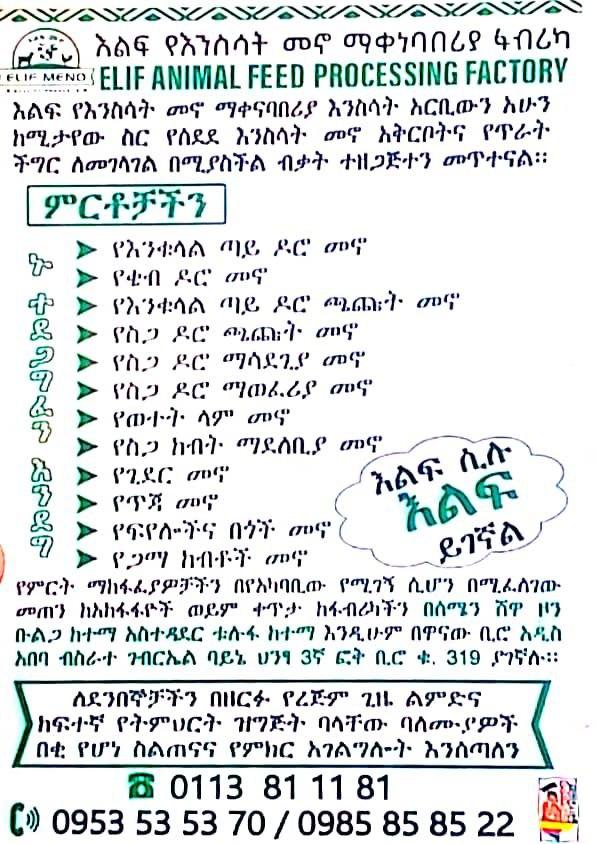 እልፍ የእንስሳት መኖ ማቀነባበሪያ ፋብሪካ
ELIF MENO
ELIF ANIMAL FEED PROCESSING FACTORY
እልፍ የእንስሳት መኖ ማቀናባበሪያ እንስሳት አርቢውን አሁን
ከሚታየው ስር የሰደደ እንስሳት መኖ አቅርቦትና የጥራት
ችግር ለመገላገል በሚያስችል ብቃት ተዘጋጅተን መጥተናል።
ምርቶቻችን
ኑ ተደጋግፈን እንደግ
የእንቁላል ጣይ ዶሮ መኖ
የቄብ ዶሮ መኖ
የእንቁላል ጣይ ዶሮ ጫጩት መኖ
የስጋ ዶሮ ጫጩት መኖ
የስጋ ዶሮ ማሳደጊያ መኖ
የስጋ ዶሮ ማወፈሪያ መኖ
የወተት ላም መኖ
የስጋ ከብት ማደለቢያ መኖ
የጊደር መኖ
የጥጃ መኖ
የፍየሎችና በጎች መኖ
የጋማ ከብቶች መኖ
እልፍ ሲሉ
እልፍ
ይገኛል
የምርት ማከፋፈያዎቻችን በየአካባቢው የሚገኝ ሲሆን በሚፈለገው
መጠን ከአከፋፋዮች ወይም ቀጥታ ከፋብሪካችን በሰሜን ሸዋ ዞን
ቡልጋ ከተማ አስተዳደር ቱሉፋ ከተማ እንዲሁም በዋናው ቢሮ አዲስ
አበባ ብስራተ ገብርኤል ባይኔ ህንፃ 3ኛ ፎቅ ቢሮ ቁ. 319 ያገኛሉ።
ለደንበኞቻችን በዘርፉ የረጅም ጊዜ ልምድና
ከፍተኛ የትምህርት ዝግጅት ባላቸው ባለሙያዎች
በቂ የሆነ ስልጠናና የምክር አገልግሎት እንሰጣለን
0113 81 11 81
0953 53 53 70 / 0985 85 85 22